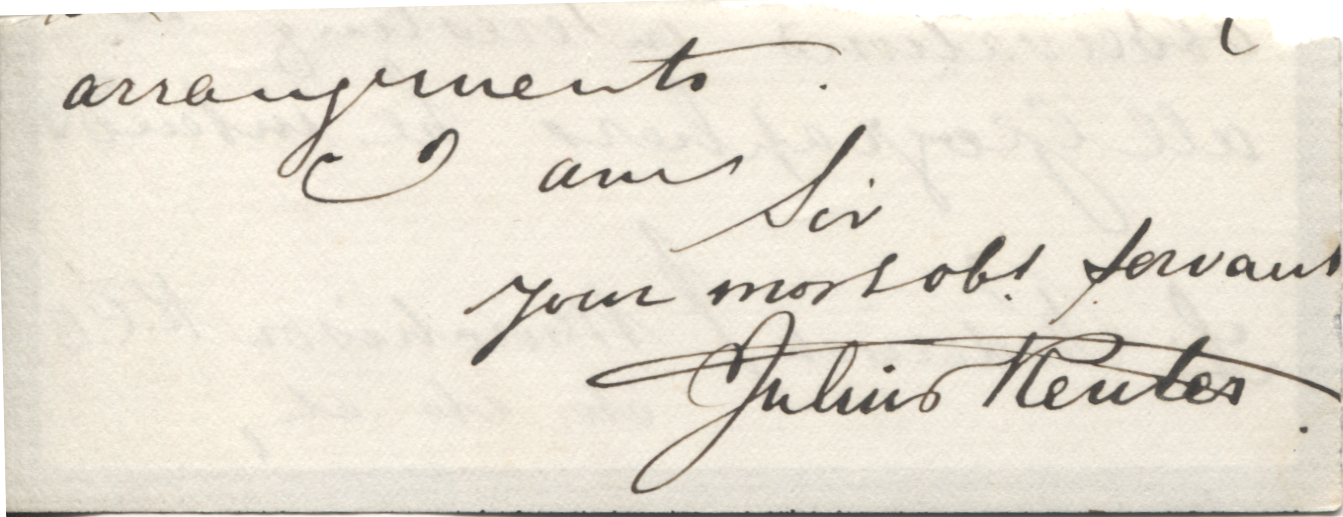 arrangements.
I am
Sir
Your most obt. servant
Julius Reuter.